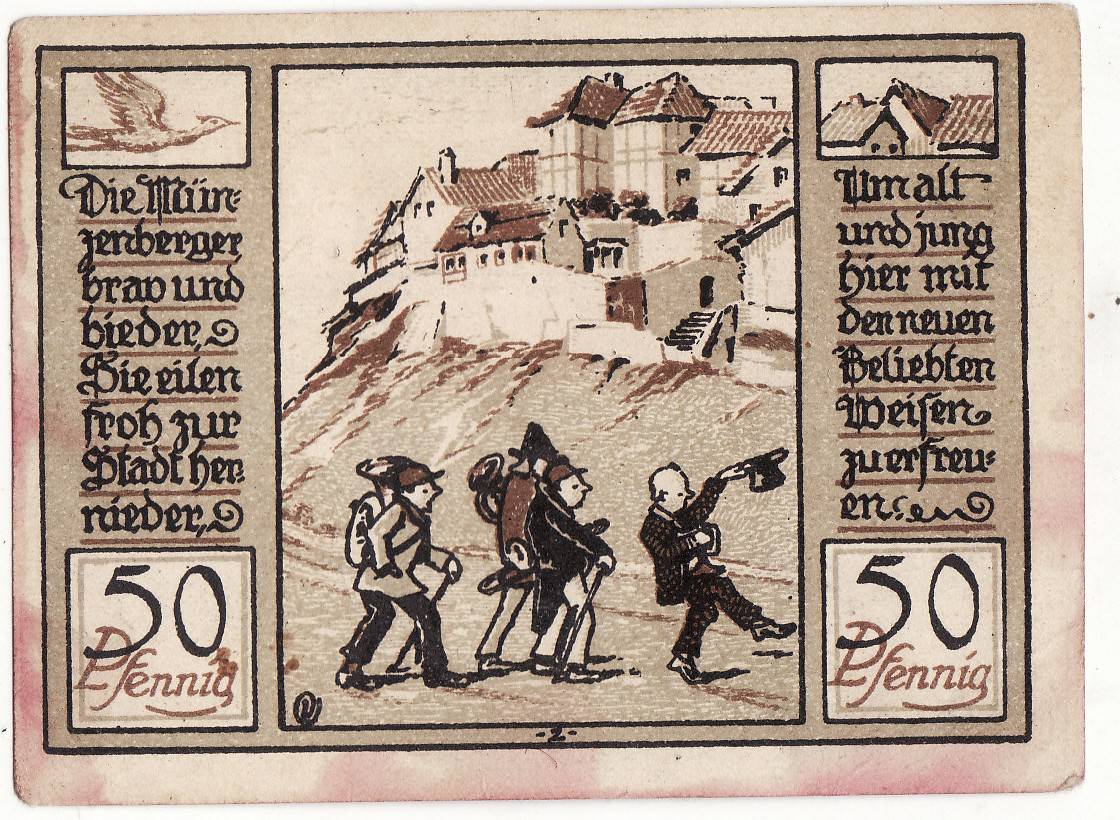 Die Mün-
zenberger
brav und
bieder,
Sie eilen
froh zur
Stadt her-
nieder,
50
Pfennig
Um alt
und jung
hier mit
den neuen
Beliebten
Weisen
zu erfreu-
en
50
Pfennig
-2-